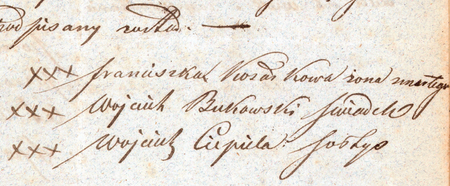 podpisany został. —
xxx Franciszka Kosarkowa żona zmarłego
xxx Wojciech Bukowski świadek
xxx Wojciech Ciepiela sołtys